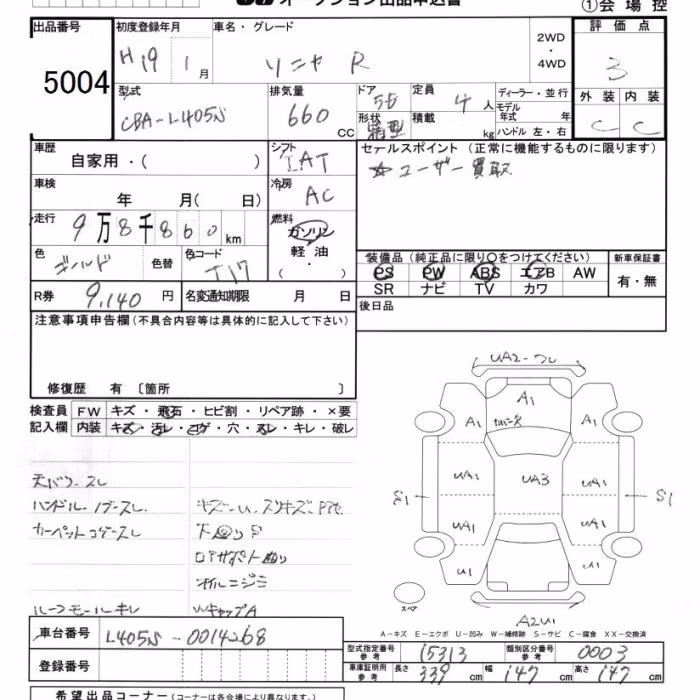 オークション出品申込書
①会場控
出品番号
5004
初度登録年月
H19 1月
車名・グレード
ソニカ R
2WD
・
4WD
評価点
3
型式
CBA-L405S
排気量
660 CC
ドア
5D
定員
4人
形状
箱型
積載
kg
ディーラー・並行
モデル
年式 年
ハンドル 左・右
外装
C
内装
C
車歴
自家用・( )
シフト
IAT
セールスポイント (正常に機能するものに限ります)
☆ユーザー買取
車検
年 月( 日)
冷房
AC
走行
9万8千860km
燃料
ガソリン
軽油
・
( )
色
ゴールド
色替
色コード
T17
装備品 (純正品に限り○をつけてください)
PS PW ABS エアB AW
SR ナビ TV カワ
新車保証書
有・無
R券
9,140円
名変通知期限 月 日
後日品
注意事項申告欄 (不具合内容等は具体的に記入して下さい)
修復歴 有 〔箇所 〕
検査員
記入欄
FW キズ・飛石・ヒビ割・リペア跡・×要
内装 キズ・汚レ・コゲ・穴・スレ・キレ・破レ
天バリ・スレ
ハンドル・ノブ・スレ
カーペットコゲ・スレ
ルーフモールキレ
WキャップA
UA2
A1
A1
A1
UA1
UA3
UA1
S1
S1
UA1
UA1
U1
U1
スペア
A2U1
A-キズ E-エクボ U-凹み W-補修跡 S-サビ C-腐食 XX-交換済
車台番号
L405S-0014268
登録番号
型式指定番号
参考
15313
類別区分番号
参考
0003
車庫証明用
参考
長さ 339 cm
幅 147 cm
高さ 147 cm
希望出品コーナー (コーナーは各会場により異なります。)